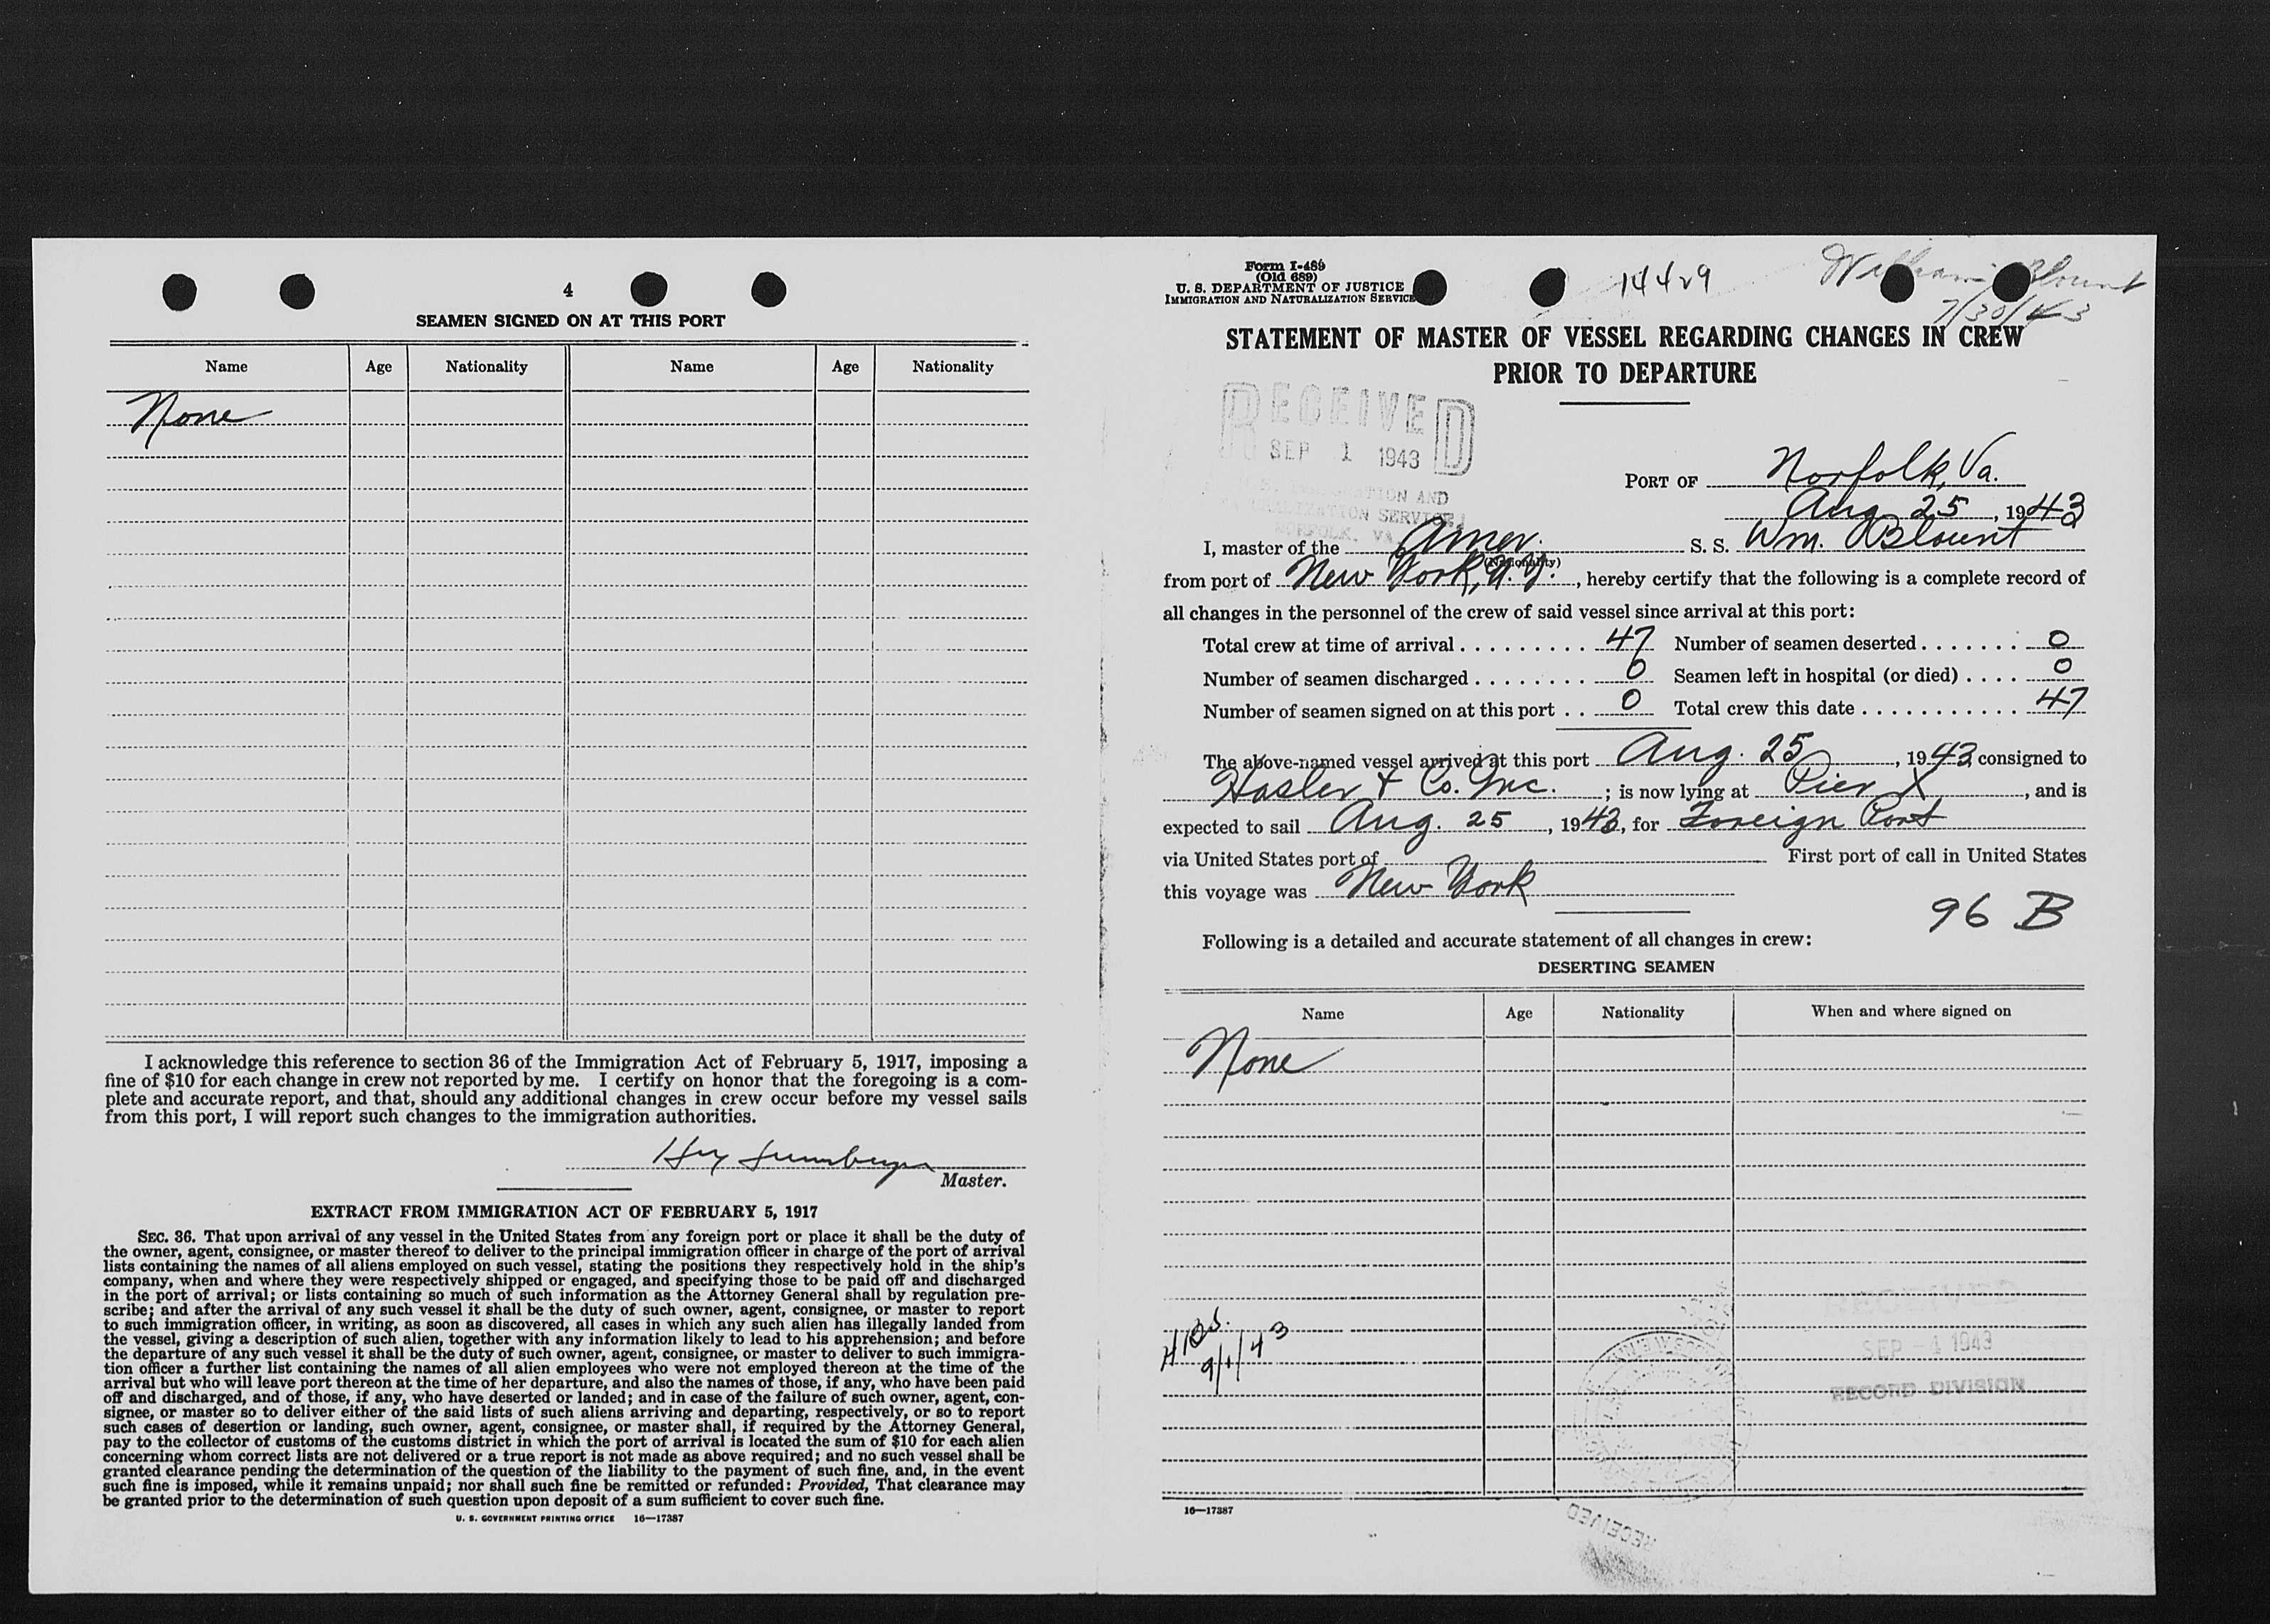 4
SEAMEN SIGNED ON AT THIS PORT
Name Age Nationality Name Age Nationality
None
I acknowledge this reference to section 36 of the Immigration Act of February 5, 1917, imposing a
fine of $10 for each change in crew not reported by me. I certify on honor that the foregoing is a com-
plete and accurate report, and that, should any additional changes in crew occur before my vessel sails
from this port, I will report such changes to the immigration authorities.
Master.
EXTRACT FROM IMMIGRATION ACT OF FEBRUARY 5, 1917
SEC. 36. That upon arrival of any vessel in the United States from any foreign port or place it shall be the duty of
the owner, agent, consignee, or master thereof to deliver to the principal immigration officer in charge of the port of arrival
lists containing the names of all aliens employed on such vessel, stating the positions they respectively hold in the ship's
company, when and where they were respectively shipped or engaged, and specifying those to be paid off and discharged
in the port of arrival; or lists containing so much of such information as the Attorney General shall by regulation pre-
scribe; and after the arrival of any such vessel it shall be the duty of such owner, agent, consignee, or master to report
to such immigration officer, in writing, as soon as discovered, all cases in which any such alien has illegally landed from
the vessel, giving a description of such alien, together with any information likely to lead to his apprehension; and before
the departure of any such vessel it shall be the duty of such owner, agent, consignee, or master to deliver to such immigra-
tion officer a further list containing the names of all alien employees who were not employed thereon at the time of the
arrival but who will leave port thereon at the time of her departure, and also the names of those, if any, who have been paid
off and discharged, and of those, if any, who have deserted or landed; and in case of the failure of such owner, agent, con-
signee, or master so to deliver either of the said lists of such aliens arriving and departing, respectively, or so to report
such cases of desertion or landing, such owner, agent, consignee, or master shall, if required by the Attorney General,
pay to the collector of customs of the customs district in which the port of arrival is located the sum of $10 for each alien
concerning whom correct lists are not delivered or a true report is not made as above required; and no such vessel shall be
granted clearance pending the determination of the question of the liability to the payment of such fine, and, in the event
such fine is imposed, while it remains unpaid; nor shall such fine be remitted or refunded: Provided, That clearance may
be granted prior to the determination of such question upon deposit of a sum sufficient to cover such fine.
U. S. GOVERNMENT PRINTING OFFICE 16—17387
Form I-489
(Old 689)
U. S. DEPARTMENT OF JUSTICE
IMMIGRATION AND NATURALIZATION SERVICE
14429
William Blount
7/30/43
STATEMENT OF MASTER OF VESSEL REGARDING CHANGES IN CREW
PRIOR TO DEPARTURE
RECEIVED
SEP 1 1943
PORT OF Norfolk, Va.
Aug 25, 1943
I, master of the Amer. S. S. Wm. Blount
(Nationality)
from port of New York, N. Y., hereby certify that the following is a complete record of
all changes in the personnel of the crew of said vessel since arrival at this port:
Total crew at time of arrival . . . . . . . . . 47 Number of seamen deserted . . . . . . . 0
Number of seamen discharged . . . . . . . . 0 Seamen left in hospital (or died) . . . . 0
Number of seamen signed on at this port . . 0 Total crew this date . . . . . . . . . . . 47
The above-named vessel arrived at this port Aug. 25, 1943 consigned to
Hasler & Co. Inc. ; is now lying at Pier X, and is
expected to sail Aug. 25, 1943, for Foreign Port
via United States port of First port of call in United States
this voyage was New York
96 B
Following is a detailed and accurate statement of all changes in crew:
DESERTING SEAMEN
Name Age Nationality When and where signed on
None
9/1/43
RECEIVED
SEP - 4 1943
RECORD DIVISION
16—17387
RECEIVED